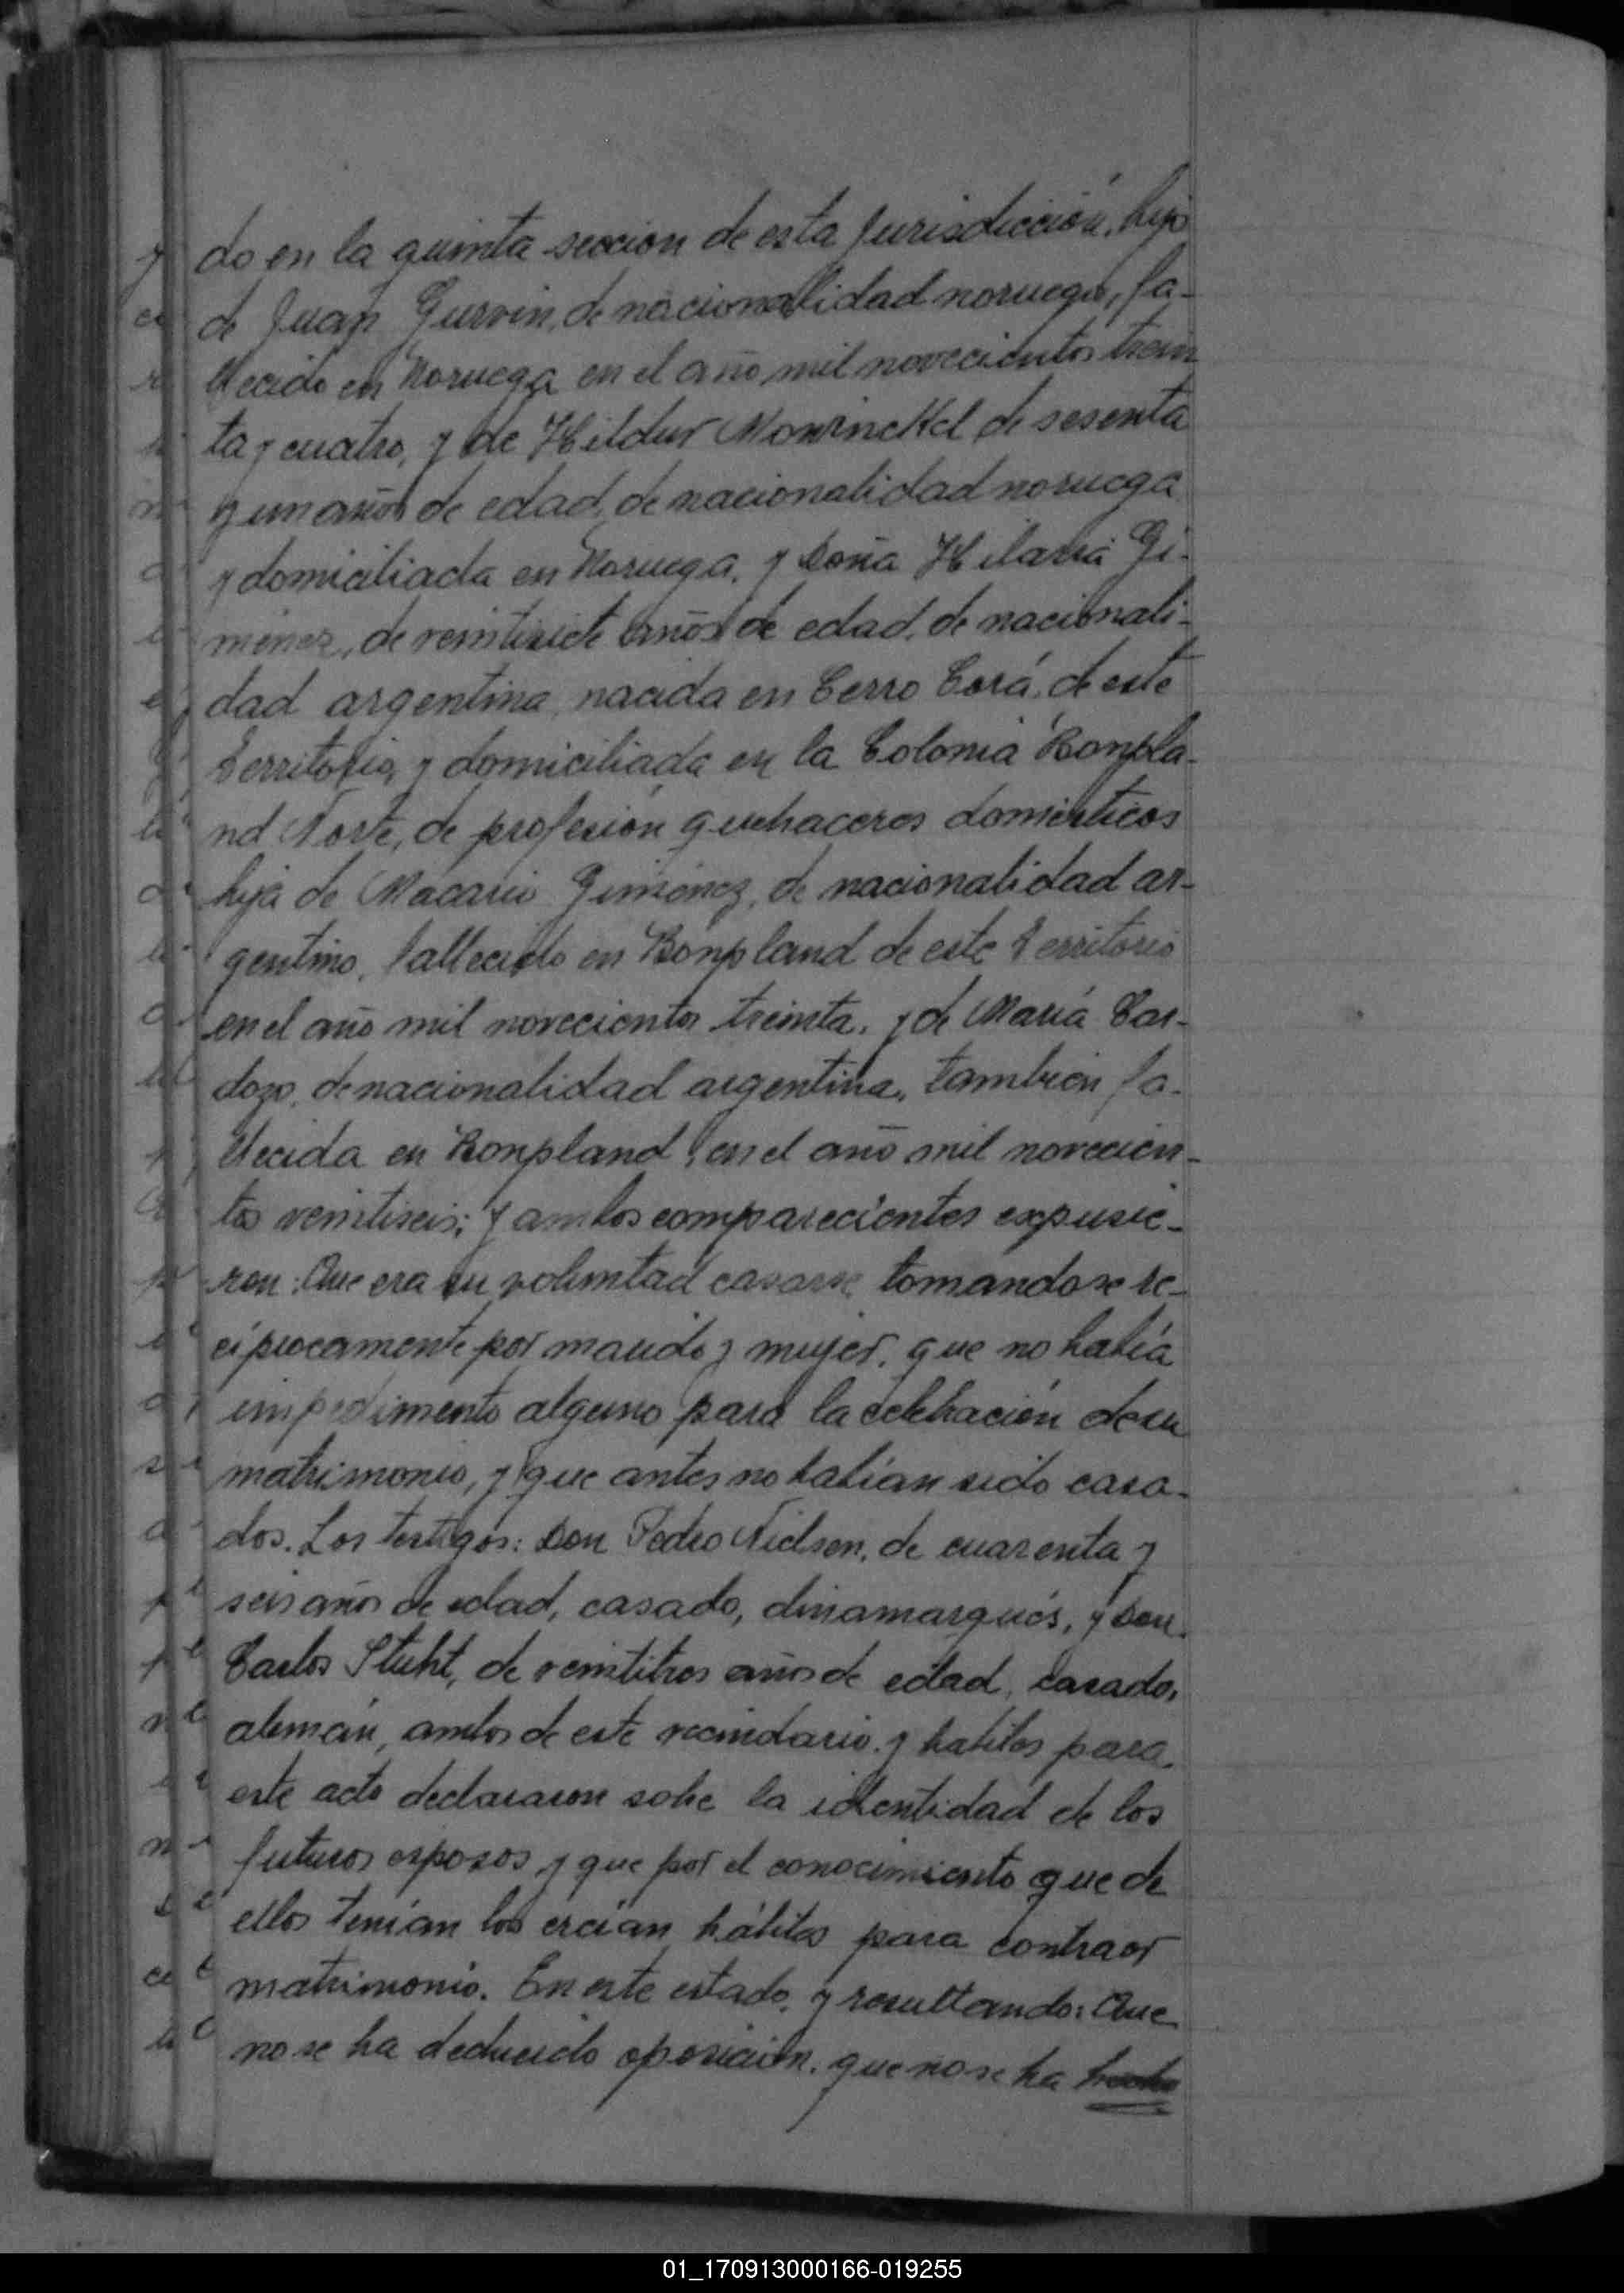 do en la quinta seccion de esta Jurisdicción, hijo
de Juan Gurvin, de nacionalidad noruega, fa-
llecido en Noruega en el año mil novecientos trein
ta y cuatro, y de Hildur Mowinckel de sesenta
y un años de edad, de nacionalidad noruega
y domiciliada en Noruega, y Doña Hilaria Gi-
ménez, de veintisiete años de edad, de nacionali-
dad argentina, nacida en Cerro Corá, de este
Territorio, y domiciliada en la Colonia Bonpla-
nd Norte, de profesión quehaceres domésticos
hija de Macario Giménez, de nacionalidad ar-
gentino, fallecido en Bonpland de este Territorio
en el año mil novecientos treinta, y de María Car-
dozo, de nacionalidad argentina, también fa-
llecida en Bonpland, en el año mil novecien-
tos veintiseis; y ambos comparecientes expusie-
ron: Que era su voluntad casarse tomandose re-
ciprocamente por marido y mujer, que no había
impedimento alguno para la celebración de su
matrimonio, y que antes no habían sido casa-
dos. Los testigos: Don Pedro Nielsen, de cuarenta y
seis años de edad, casado, dinamarqués, y Don
Carlos Stuht, de veintitres años de edad, casado,
alemán, ambos de este vecindario y habiles para
este acto declararon sobre la identidad de los
futuros esposos y que por el conocimiento que de
ellos tenían los creían hábiles para contraer
matrimonio. En este estado, y resultando: Que
no se ha deducido oposición, que no se ha
01_170913000166-019255